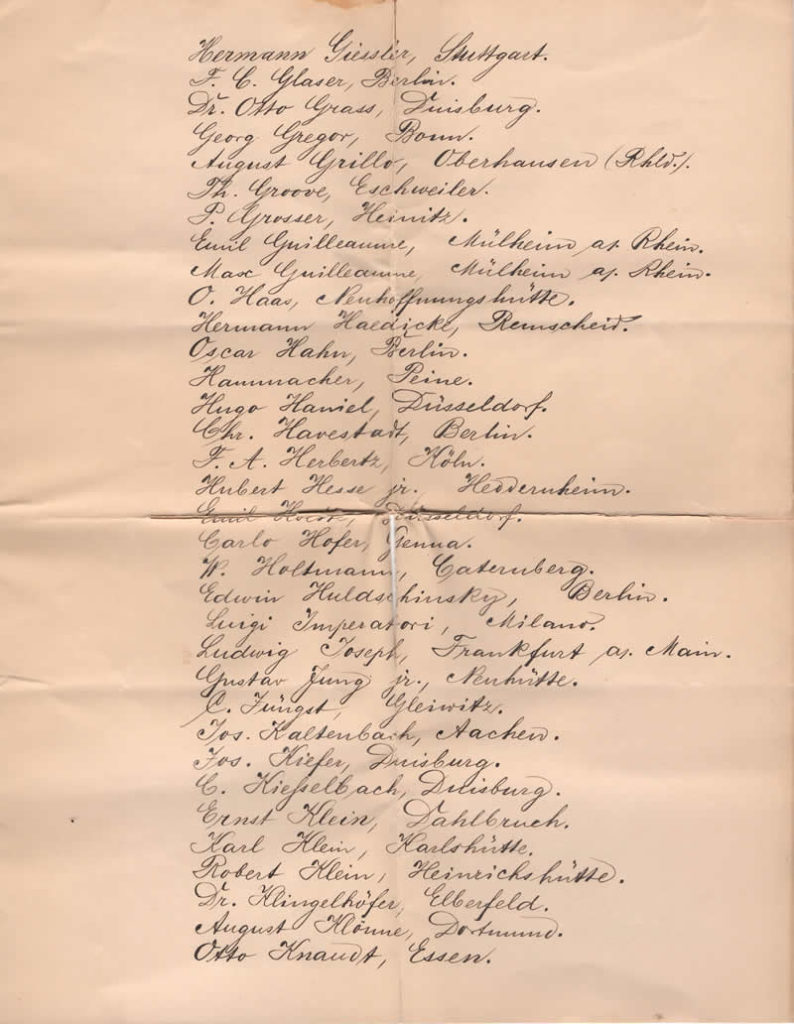 Hermann Giessler, Stuttgart.
F. C. Glaser, Berlin.
Dr. Otto Grass, Duisburg.
Georg Gregor, Bonn.
August Grillo, Oberhausen (Rhld.).
Th. Groove, Eschweiler.
P. Grosser, Heinitz.
Emil Guilleaume, Mülheim a. Rhein.
Max Guilleaume, Mülheim a. Rhein.
O. Haas, Neuhoffnungshütte.
Hermann Haedicke, Remscheid.
Oscar Hahn, Berlin.
Hammacher, Peine.
Hugo Haniel, Düsseldorf.
Chr. Havestadt, Berlin.
F. A. Herbertz, Köln.
Hubert Hesse jr. Heddernheim.
Emil Düsseldorf.
Carlo Hofer, Genua.
W. Holtmann, Caternberg.
Edwin Huldschinsky, Berlin.
Luigi Imperatori, Milano.
Ludwig Joseph, Frankfurt a. Main.
Gustav Jung jr., Neuhütte.
C. Jüngst, Gleiwitz.
Jos. Kaltenbach, Aachen.
Jos. Kiefer, Duisburg.
C. Kiesselbach, Duisburg.
Ernst Klein, Dahlbruch.
Karl Klein, Karlshütte.
Robert Klein, Heinrichshütte.
Dr. Klingelhöfer, Elberfeld.
August Klönne, Dortmund.
Otto Knaudt, Essen.